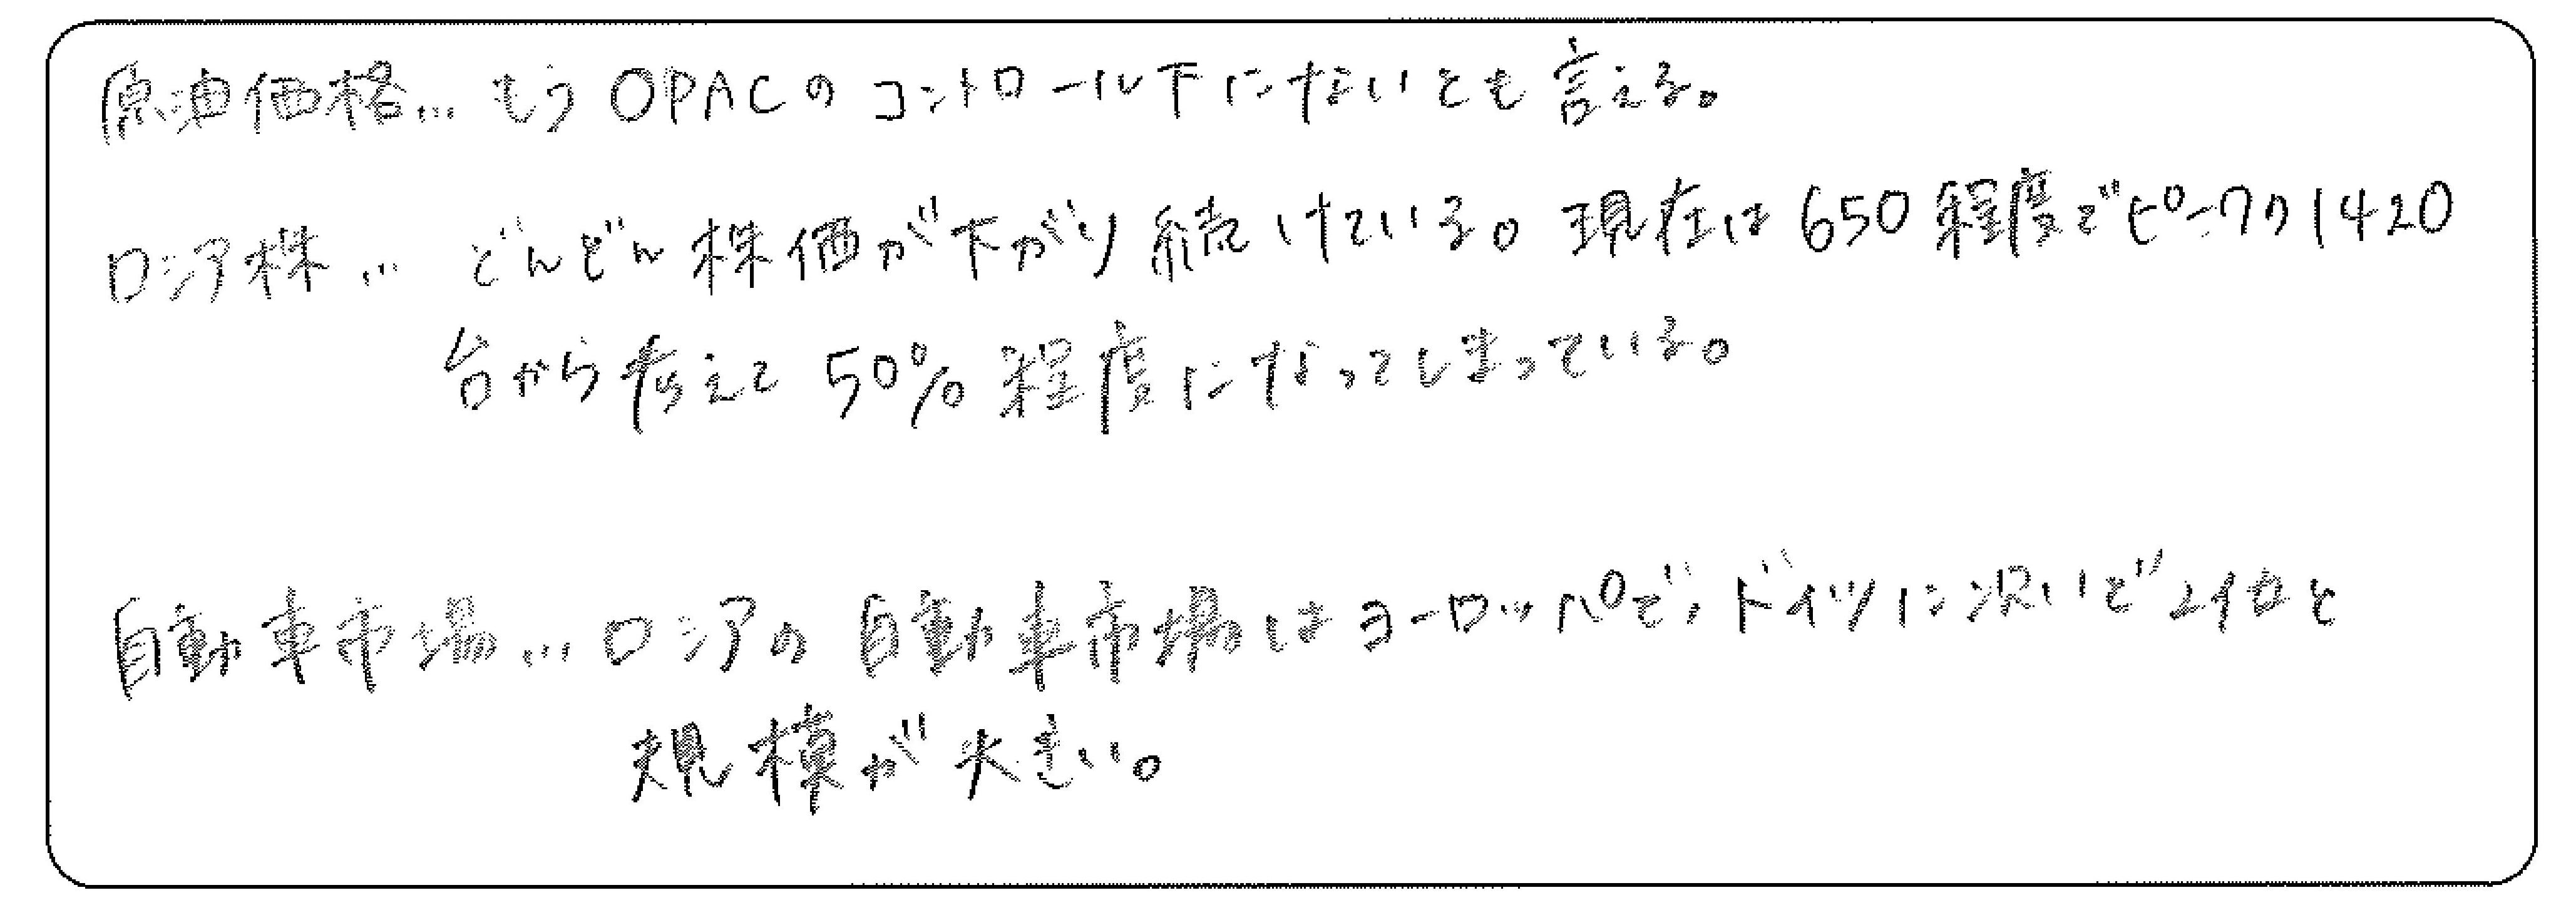 原油価格… もう OPACのコントロール下にないとも言える。
ロシア株… どんどん株価が下がり続けている。現在は650程度でピークの1420
台から考えて50%程度になってしまっている。
自動車市場… ロシアの自動車市場はヨーロッパで、ドイツに次いで2位と
規模が大きい。